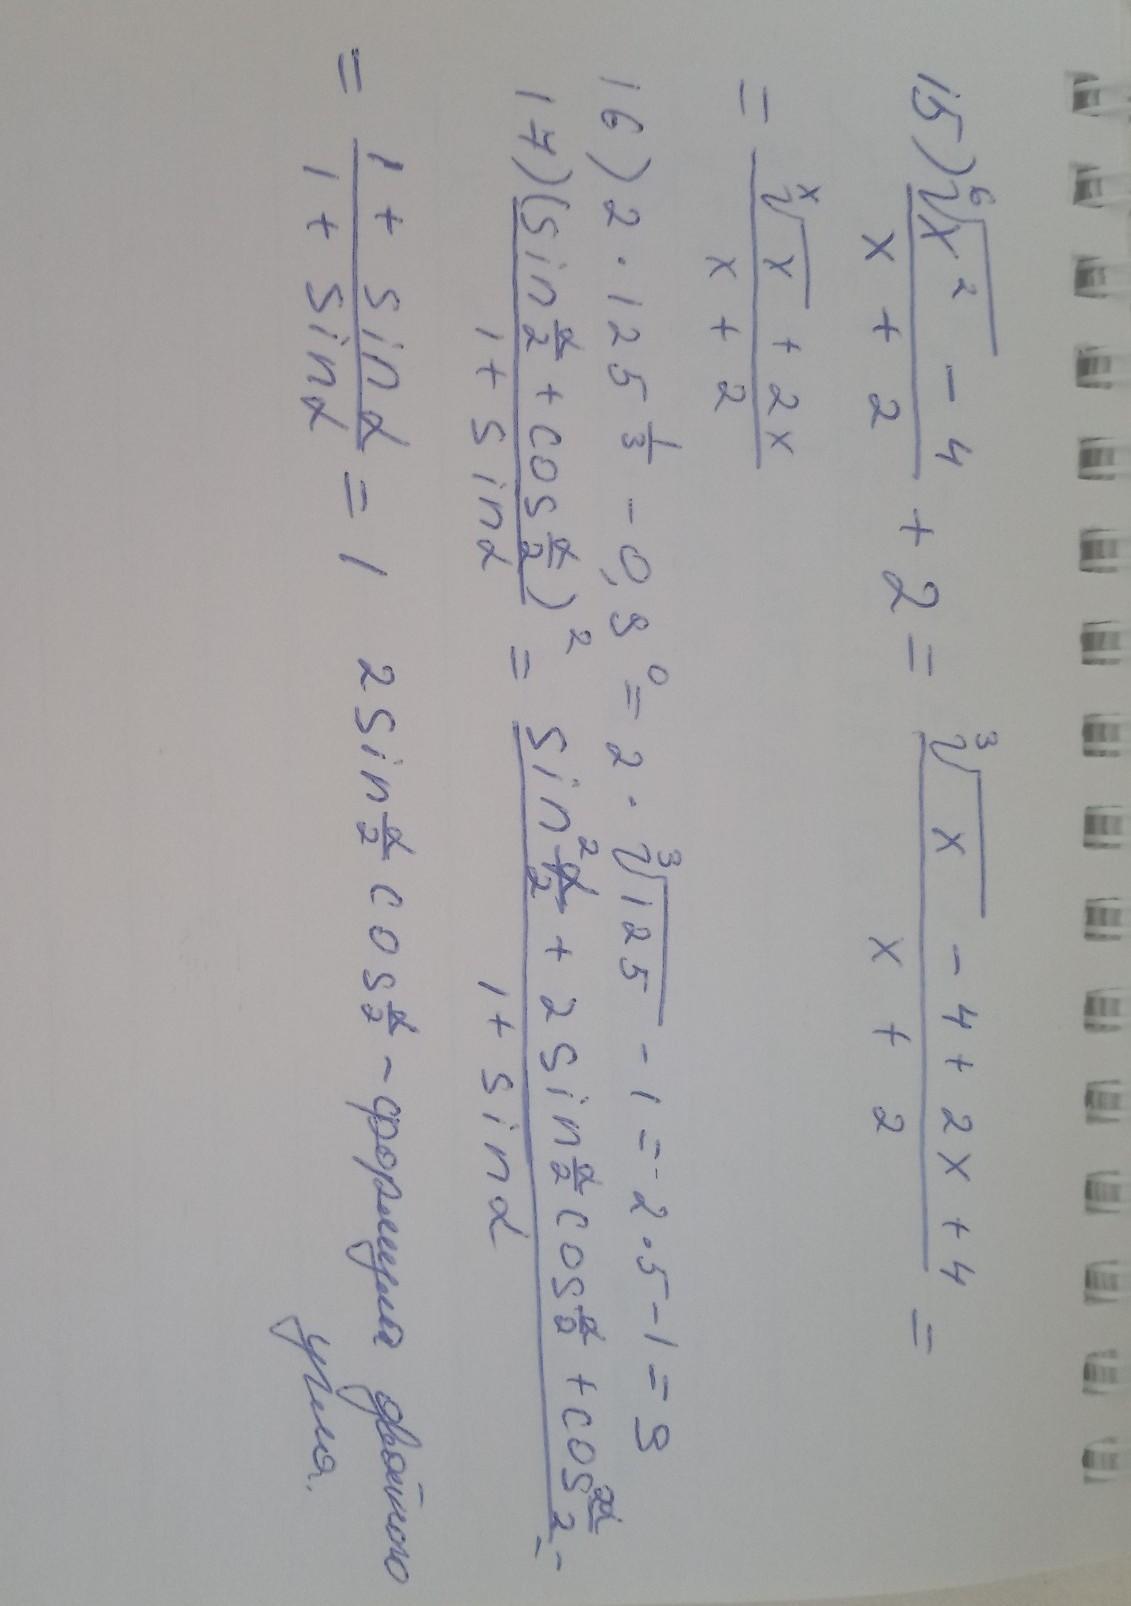 15) \frac{\sqrt[6]{x^2} - 4}{x + 2} + 2 = \frac{\sqrt[3]{x} - 4 + 2x + 4}{x + 2} =
= \frac{\sqrt[x]{x} + 2x}{x + 2}
16) 2 · 125^{\frac{1}{3}} - 0,9^0 = 2 · \sqrt[3]{125} - 1 = 2 · 5 - 1 = 9
17) \frac{(sin\frac{α}{2} + cos\frac{α}{2})^2}{1 + sinα} = \frac{sin^2\frac{α}{2} + 2sin\frac{α}{2}cos\frac{α}{2} + cos^2\frac{α}{2}}{1 + sinα} =
= \frac{1 + sinα}{1 + sinα} = 1 2sin\frac{α}{2}cos\frac{α}{2} - формула двойного
угла.